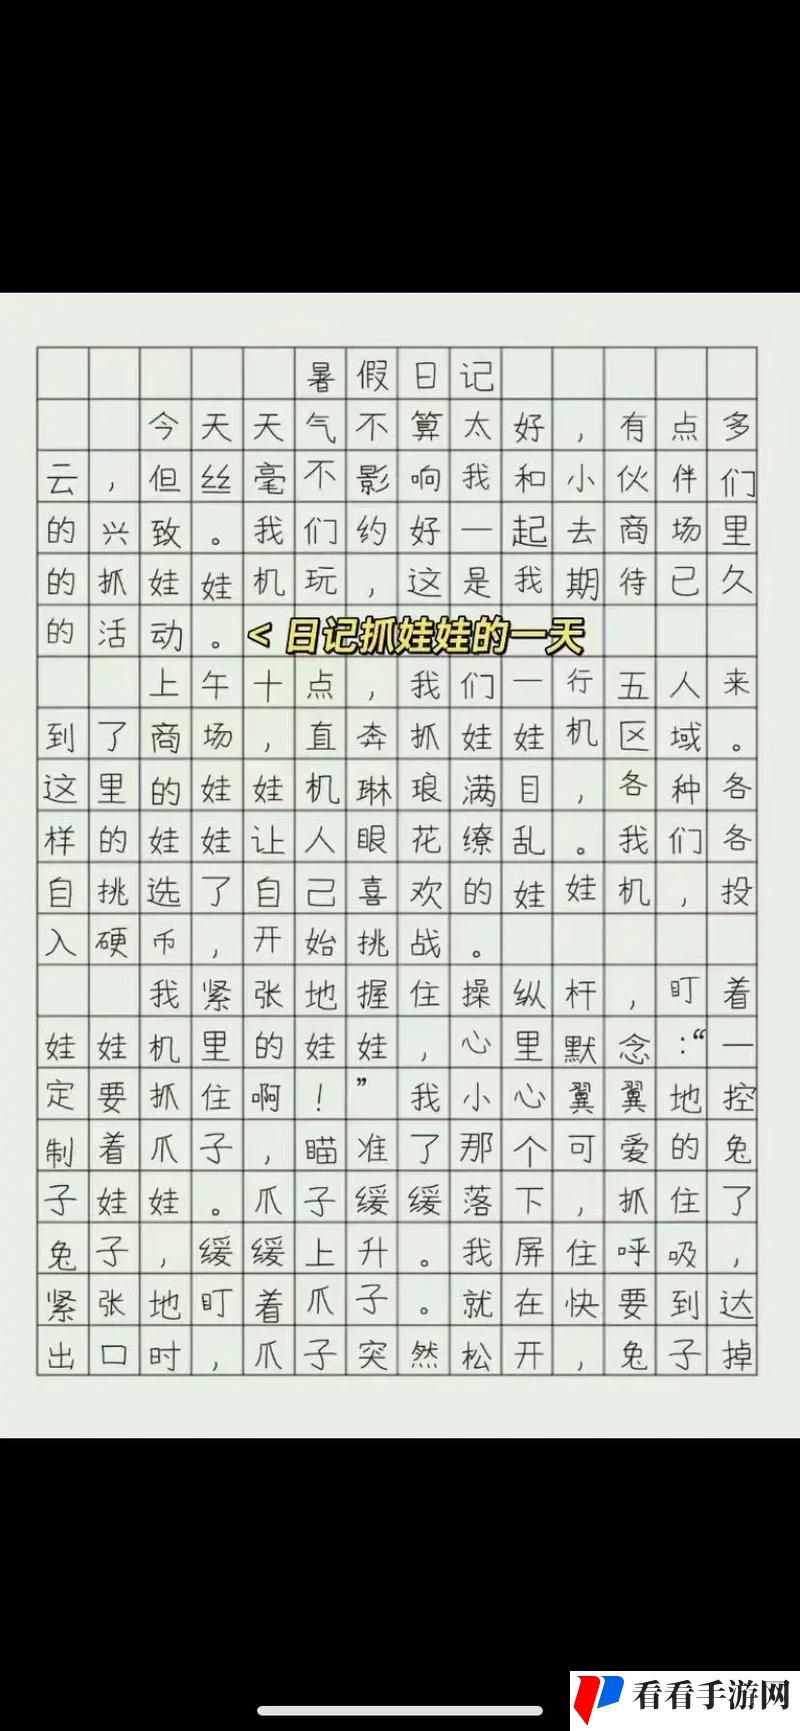 暑假日记
今天天气不算太好，有点多
云，但丝毫不影响我和小伙伴们
的兴致。我们约好一起去商场里
的抓娃娃机玩，这是我期待已久
的活动。
<日记抓娃娃的一天
上午十点，我们一行五人来
到了商场，直奔抓娃娃机区域。
这里的娃娃机琳琅满目，各种各
样的娃娃让人眼花缭乱。我们各
自挑选了自己喜欢的娃娃机，投
入硬币，开始挑战。
我紧张地握住操纵杆，盯着
娃娃机里的娃娃，心里默念：“一
定要抓住啊！”我小心翼翼地控
制着爪子，瞄准了那个可爱的兔
子娃娃。爪子缓缓落下，抓住了
兔子，缓缓上升。我屏住呼吸，
紧张地盯着爪子。就在快要到达
出口时，爪子突然松开，兔子掉
看看手游网